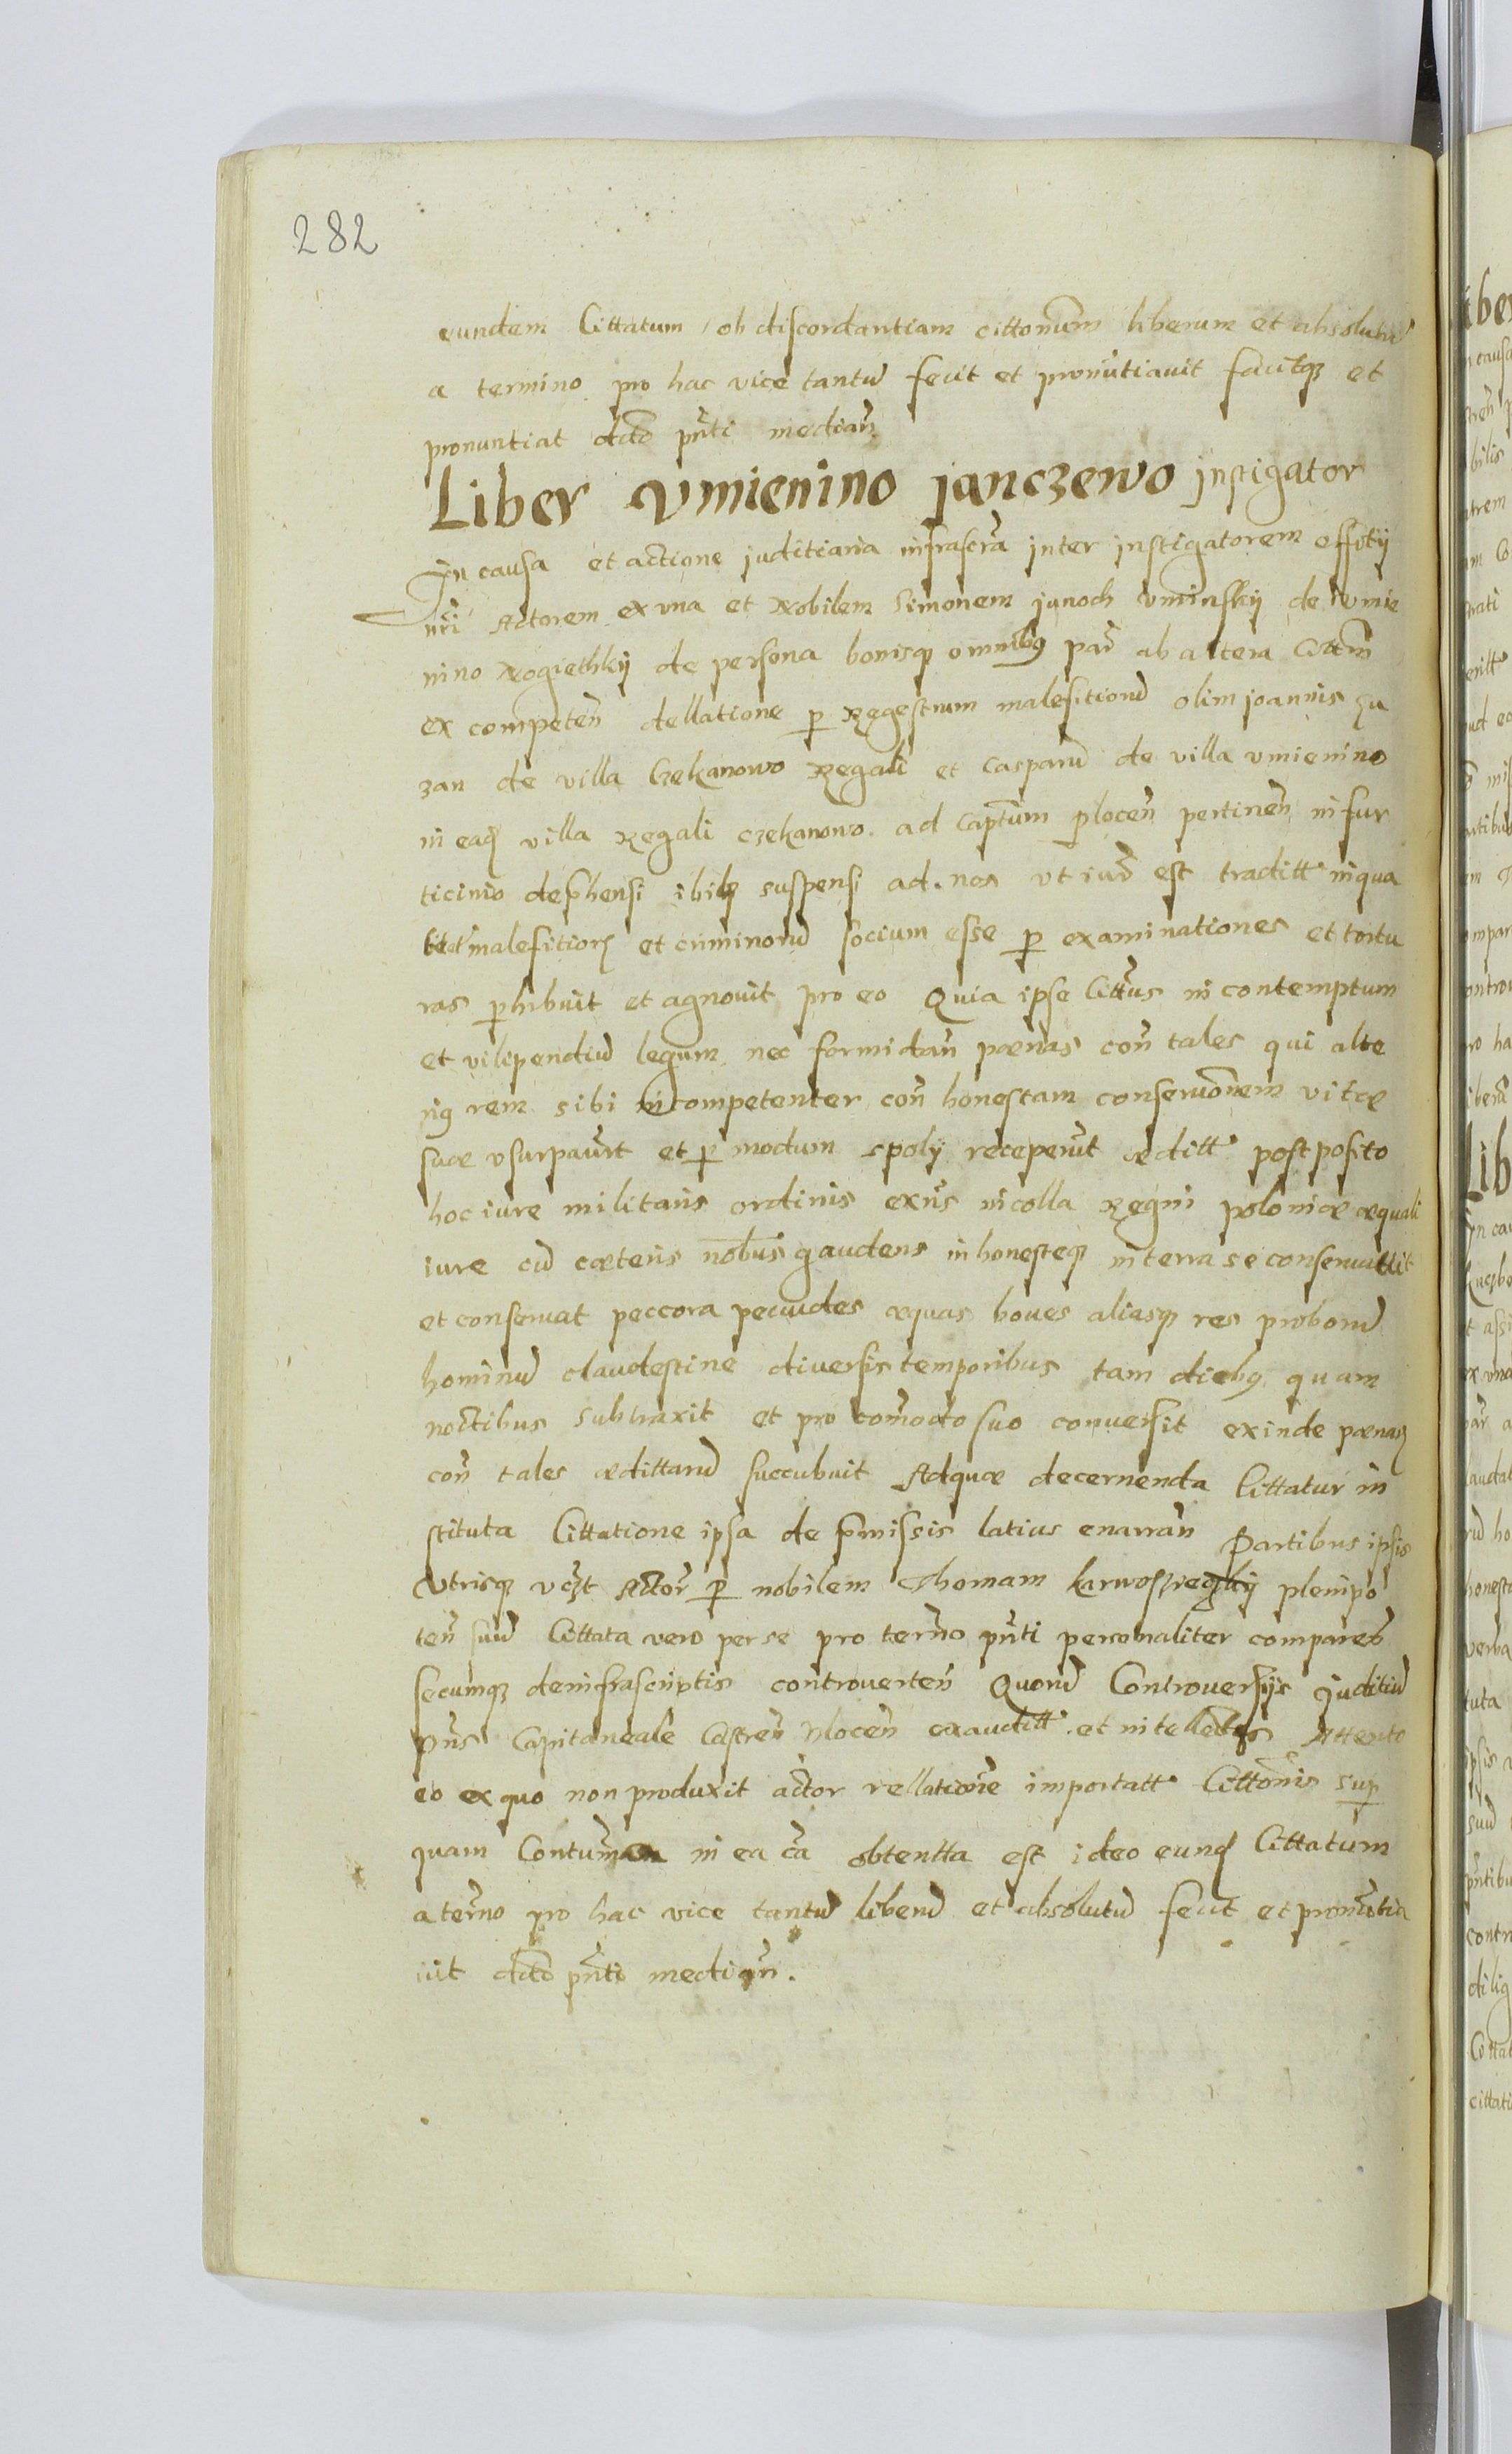 282
eundem Cittatum ob discordantiam cittōnum liberum et absolutū
a termino pro hac vice tantū fecit et pronūtiavit facitqз et
pronuntiat dcto pn̄ti median̄
Liber Vmienino janczewo jnstigator
Jn causa et actione juditiaria infrascrā jnter jnstigatorem offitij
nr̄i Actorem ex vna et Nobilem Simonem junoch vminskij de vmie
nino Rogiethkij de persona bonisqз omnibꝰ par̄ ab altera Citt̄m
ex competen̄ dellatione p Regestrum malefitiorū olim joannis
zan de villa Czekanowo Regali et Casparū de villa vmienino
in eaq villa Regali czekanowo ad Captūm plocen̄ pertinen̄ in fur
ticinio dephensi ibiqз suspensi ad nos vt iurē est traditt inqua
malefitiorꝝ et criminorū socium esse p examinationes et tortu
ras phibuit et agnovit pro eo Quia ipse Cittūs in contemptum
et vilipendiū legum nec formidan̄ pœnas con̄ tales qui alte
riꝰ rem sibi incompetenter con̄ honestam conservōnem vitæ
suæ vsurpaver̄t et p modum spolij receperūt æditt postposito
hoc iure militaris ordinis exn̄s incolla Regni poloniæ æquali
iure cū cæteris nobbus gaudens inhonesteqз in terra se conservavit
et conservat peccora pecudes æquas boves aliasqз res proborū
hominū clandestine diversis temporibus tam diebꝰ quam
noctibus subtraxit et pro com̄odo suo conversit exinde pœnas
con̄ tales ædittarū succubuit Adquæ decernenda Cittatur in
stituta Cittatione ipsa de p̄missis latius enarran̄ Partibus ipsis
Vtrisqз vcзt Actor̄ p nobilem Thomam plenipo
ten̄ suū Cittata vero per se pro ter̄no pn̄ti personaliter comparen̄
secumqз deinfrascriptis controverten̄ Quorū Controversijs Juditiū
pn̄s Capitaneale Castren̄ Plocen̄ exauditt et intellectis Attento
eo ex quo non produxit actor rellationē importatt Cittōnis sup
quam Contum̄a in ea cā obtentta est ideo eunq Cittatum
a ter̄no pro hac vice tantū liberū et absolutū fecit et pronūtia
vit dcto pn̄ti median̄.